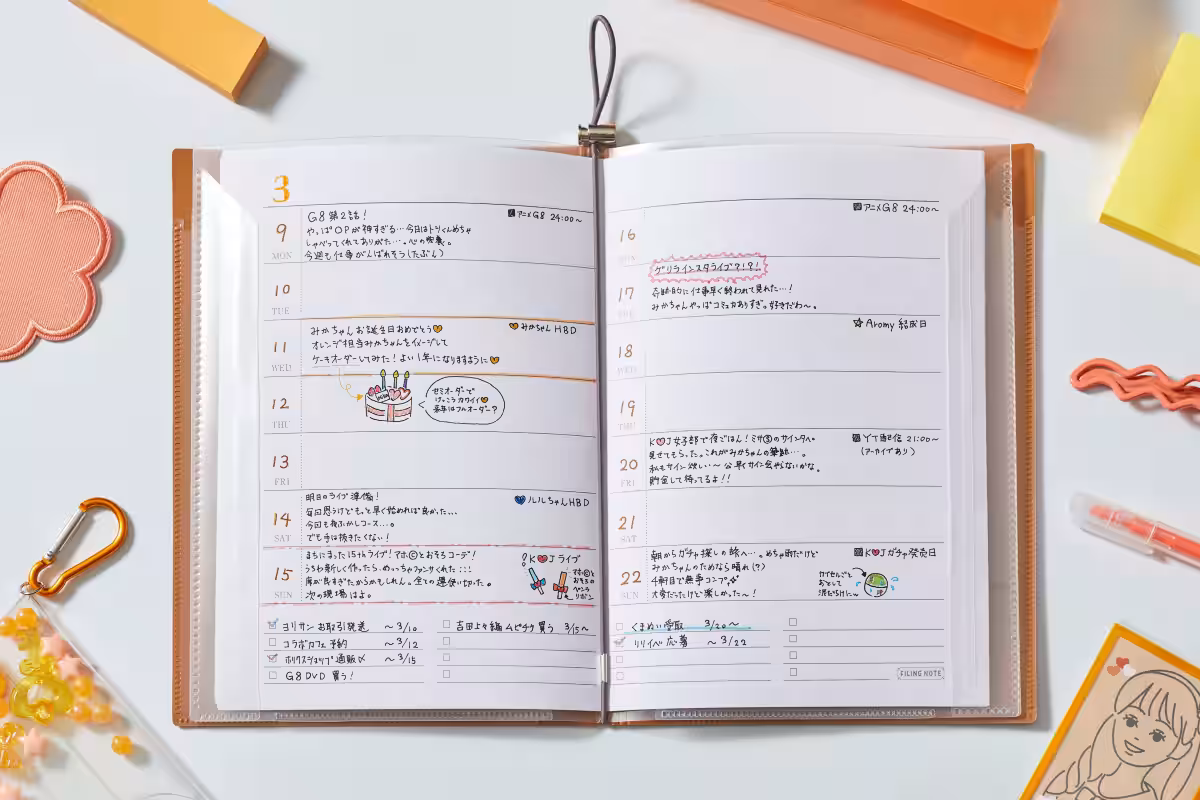 3
9
MON
G8 第2話!
やっぱOPが神すぎる…今日はトリくんめちゃ
しゃべってくれてありがた…。心の栄養。
今週も仕事がんばれそう(たぶん)
アニメG8 24:00〜
10
TUE
11
WED
みかちゃんお誕生日おめでとう
オレンジ担当みかちゃんをイメージして
ケーキオーダーしてみた!よい1年になりますように
みかちゃんHBD
12
THU
セミオーダーで
けっこうカワイイ
来年はフルオーダー?
13
FRI
14
SAT
明日のライブ準備!
毎回思うけどもっと早く始めれば良かった…
今回も夜ふかしコース…。
でも手は抜きたくない!
ルルちゃんHBD
15
SUN
まちにまった15thライブ!マホ©とおそろコーデ!
うちわ新しく作ったら、めっちゃファンサくれた:::
席が良すぎたからかもしれん。全ての運使い切った。
次の現場はよ。
K♥Jライブ
マホ©と
おそろの
ペンラ
リボン
ヨリサン お取引発送 〜3/10
コラボカフェ 予約 〜3/12
ホリクスショップ通販〆 〜3/15
G8 DVD 買う!
吉田よケ編 ムビチケ買う 3/15〜
16
アニメG8 24:00〜
17
ゲリラインスタライブ?!?!
奇跡的に仕事早く終われて見れた…!
みかちゃんやっぱコミュカありすぎ。好きだわ〜。
18
WED
Aromy 結成日
19
THU
20
FRI
K♥J女子部で夜ごはん!ミサ③のサインタペ
見せてもらった。これがみかちゃんの筆跡…。
私もサイン欲しい…〜 公早くサイン会やらないかな。
貯金して待ってるよ!!
YT配信 21:00〜
(アーカイブあり)
21
SAT
22
SUN
朝からガチャ探しの旅へ…。めちゃ雨だけど
みかちゃんのためなら晴れ(?)
4軒目で無事コンプ
大変だったけど楽しかった〜!
K♥Jガチャ発売日
カプセルごと
おとして
泥だらけに〜
くまぬい受取 3/20〜
リリイベ応募 〜3/22
FILING NOTE